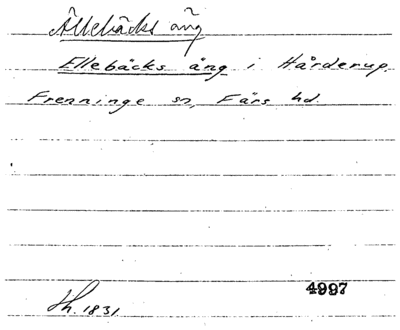 Ällebäcks äng
Ellebäcks äng i Hårderup.
Frenninge sn, Färs hd.
4997
Th. 1831